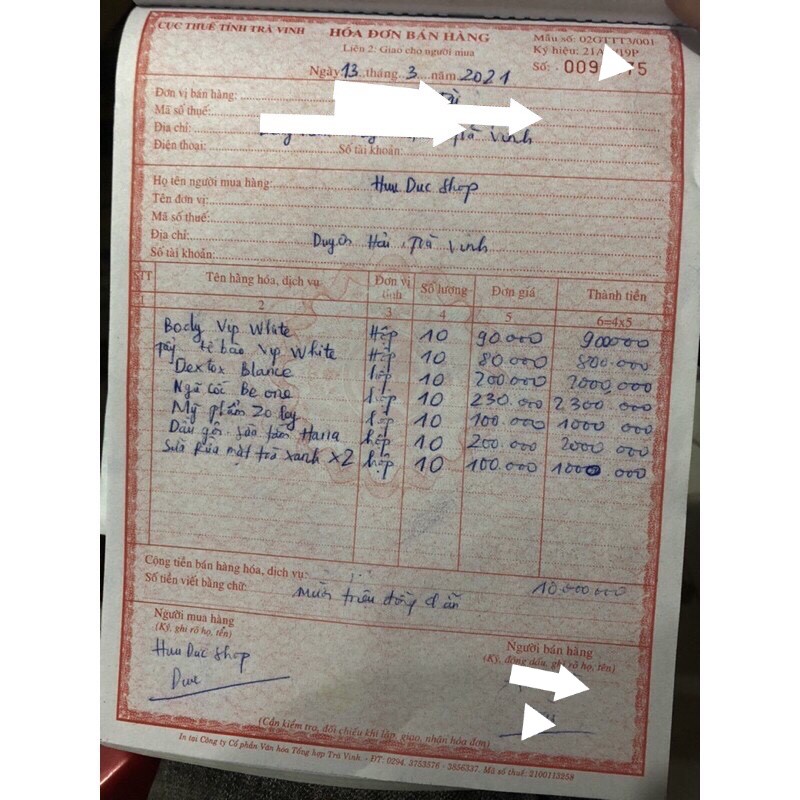 CỤC THUẾ TỈNH TRÀ VINH
HÓA ĐƠN BÁN HÀNG
Liên 2: Giao cho người mua
Mẫu số: 02GTTT3/001
Ký hiệu: 21A 19P
Số: 009 75
Ngày 13 tháng 3 năm 2021
Đơn vị bán hàng:
Mã số thuế:
Địa chỉ: Trà Vinh
Điện thoại: Số tài khoản:
Họ tên người mua hàng: Huu Duc Shop
Tên đơn vị:
Mã số thuế:
Địa chỉ: Duyên Hải, Trà Vinh
Số tài khoản:
STT Tên hàng hóa, dịch vụ Đơn vị tính Số lượng Đơn giá Thành tiền
1 2 3 4 5 6=4x5
Body Vip White Hộp 10 90.000 900000
tế bào Vip White Hộp 10 80.000 800.000
Dextox Blance hộp 10 200.000 2000,000
Ngũ cốc Be one hộp 10 230.000 2300.000
Mỹ phẩm 10 100.000 1000 000
Dầu gội. sữa tắm Hana hộp 10 200.000 2000 000
Sữa Rửa mặt trà xanh x2 hộp 10 100.000 1000 000
Cộng tiền bán hàng hóa, dịch vụ: 10.000.000
Số tiền viết bằng chữ: Mười triệu đồng chẵn
Người mua hàng
(Ký, ghi rõ họ, tên)
Huu Duc Shop
Duc
Người bán hàng
(Ký, đóng dấu, ghi rõ họ, tên)
(Cần kiểm tra, đối chiếu khi lập, giao, nhận hóa đơn)
In tại Công ty Cổ phần Văn hóa Tổng hợp Trà Vinh. - ĐT: 0294. 3753576 - 3856337. Mã số thuế: 2100113258